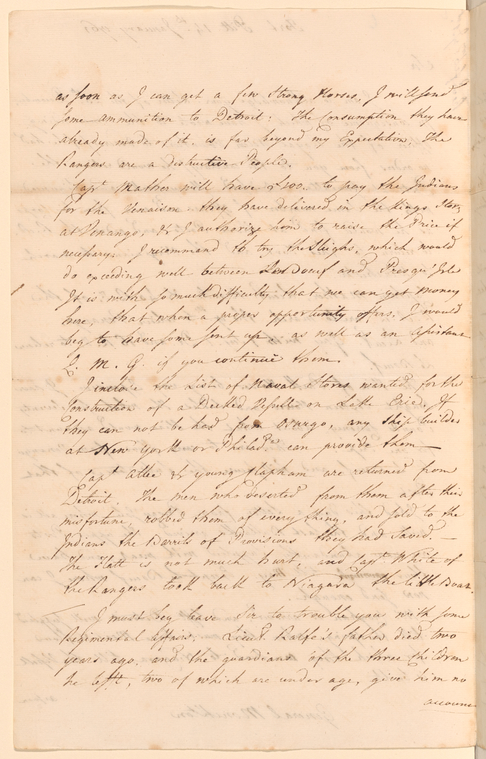 as soon as I can get a few Strong Horses, I will send
some ammunition to Detroit: The Consumption they have
already made of it, is far beyond my Expectation. The
Rangers are a destructive People.
Capt. Mather will have £400. to pay the Indians
for the Venaison they have delivered in the Kings Store
at Venango, & I authorize him to raise the Price if
necessary. I recommend to try the Sleighs, which would
do exceeding well between LeBoeuf and Presqu'Isle
It is with so much difficulty that we can get Money
here, that when a proper opportunity offers, I would
beg to have some sent up as well as an Assistant
Q. M. G. if you continue them.
I inclose the List of Naval Stores wanted for the
Construction of a Decked Vessell on Lake Erie. If
they can not be had from Oswego, any Ship builder
at New York or Philad.a can provide them —
Capt. and young Clapham are returned from
Detroit. The men who deserted from them after their
misfortune, robbed them of every thing, and sold to the
Indians the Barrils of Provisions they had Saved. —
The Flatt is not much hurt, and Capt. White of
the Rangers took back to Niagara the little Boat.
I must beg leave Sir to trouble you with some
Regimental Affairs. Lieut. father died two
years ago, and the guardians of the three Children
he left, two of which are under age, give him no
account